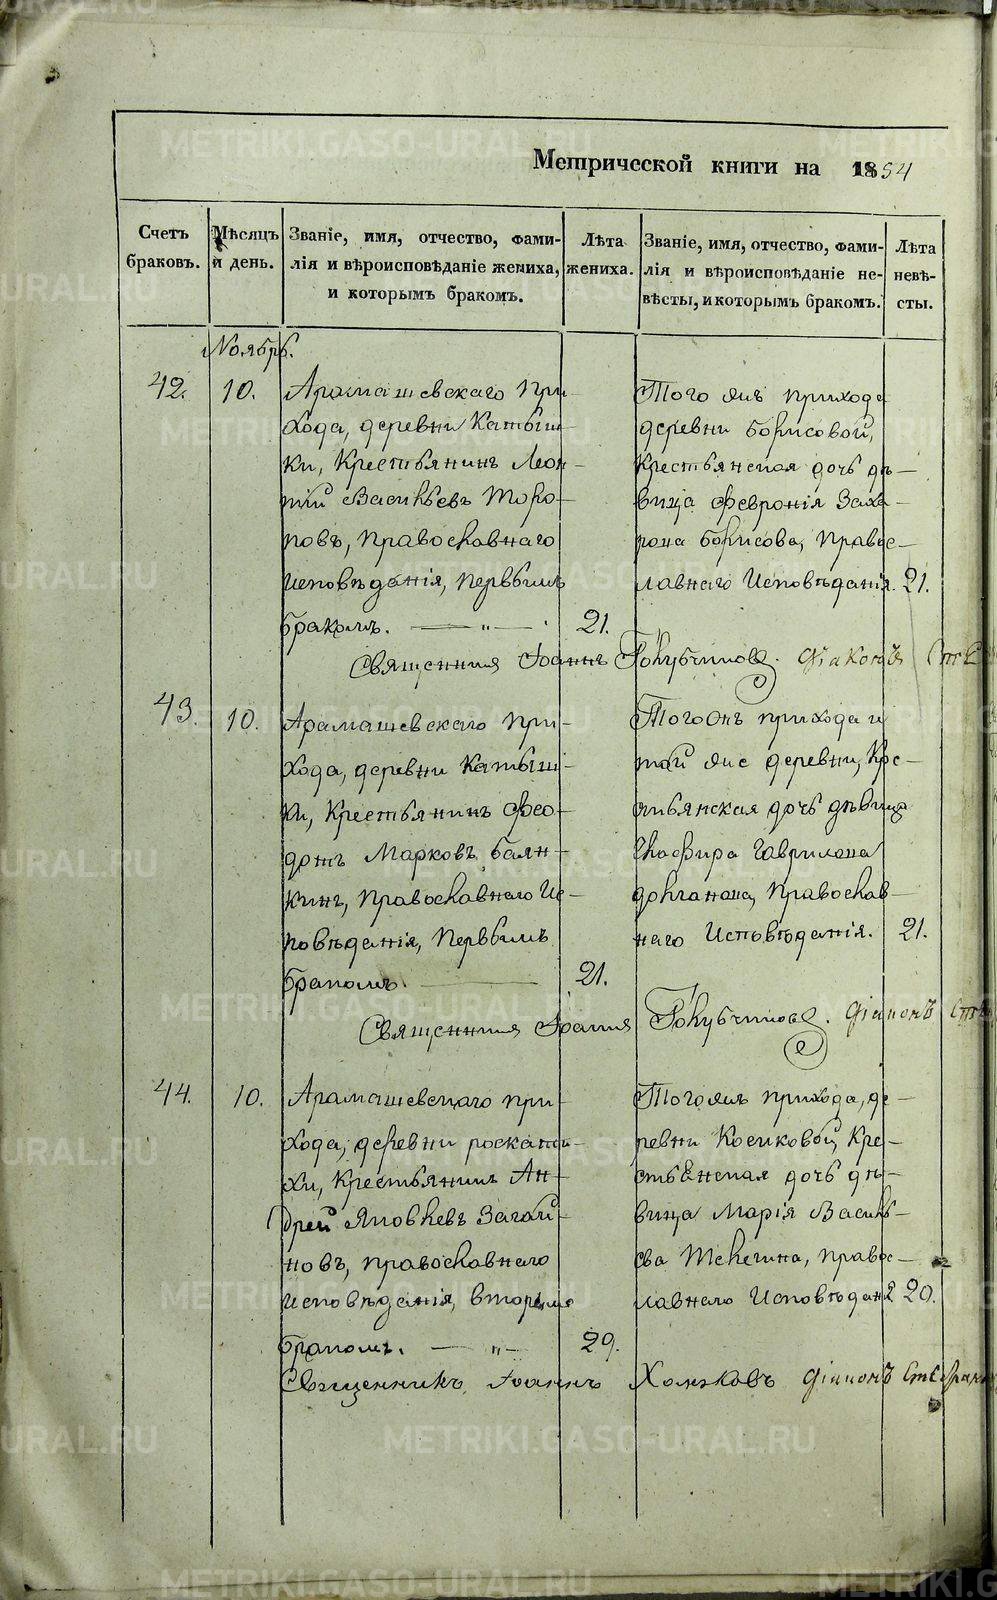 Метрической книги на 1854
Счетъ браковъ.
Мѣсяцъ и день.
Званіе, имя, отчество, фами-
лія и вѣроисповѣданіе жениха,
и которымъ бракомъ.
Лѣта жениха.
Званіе, имя, отчество, фами-
лія и вѣроисповѣданіе не-
вѣсты, и которымъ бракомъ.
Лѣта невѣ-
сты.
Ноябрь.
42. 10.
Арамашевскаго при-
хода, деревни Катыш-
ки, Крестьянинъ Леон-
тій Васильевъ Торо-
повъ, православнаго
исповѣданія, первымъ
бракомъ. 21.
Того же прихода
деревни Борисовой,
Крестьянская дочь дѣ-
вица Февронія Заха-
рова Борисова, Правос-
лавнаго Исповѣданія. 21.
Священникъ Іоаннъ Голубчиковъ. Діаконъ
43. 10.
Арамашевскаго при-
хода, деревни Катыш-
ки, Крестьянинъ Фео-
дотъ Марковъ Баян-
кинъ, православнаго Ис-
повѣданія, первымъ
бракомъ. 21.
Того жъ прихода и
той же деревни, Кре-
стьянская дочь дѣвица
Гаврилова
Долганова, Православ-
наго Исповѣданія. 21.
Священникъ Іоаннъ Голубчиковъ. Діаконъ
44. 10.
Арамашевскаго при-
хода, деревни Роскати-
хи, Крестьянинъ Ан-
дрей Яковлевъ Загай-
новъ, православнаго
исповѣданія, вторымъ
бракомъ. 29.
Того жъ прихода, де-
ревни Косиковой, Кре-
стьянская дочь дѣ-
вица Марія Василь-
ева Телегина, правос-
лавнаго Исповѣдан 20.
Священникъ Іоаннъ Холмковъ Діаконъ
METRIKI.GASO-URAL.RU